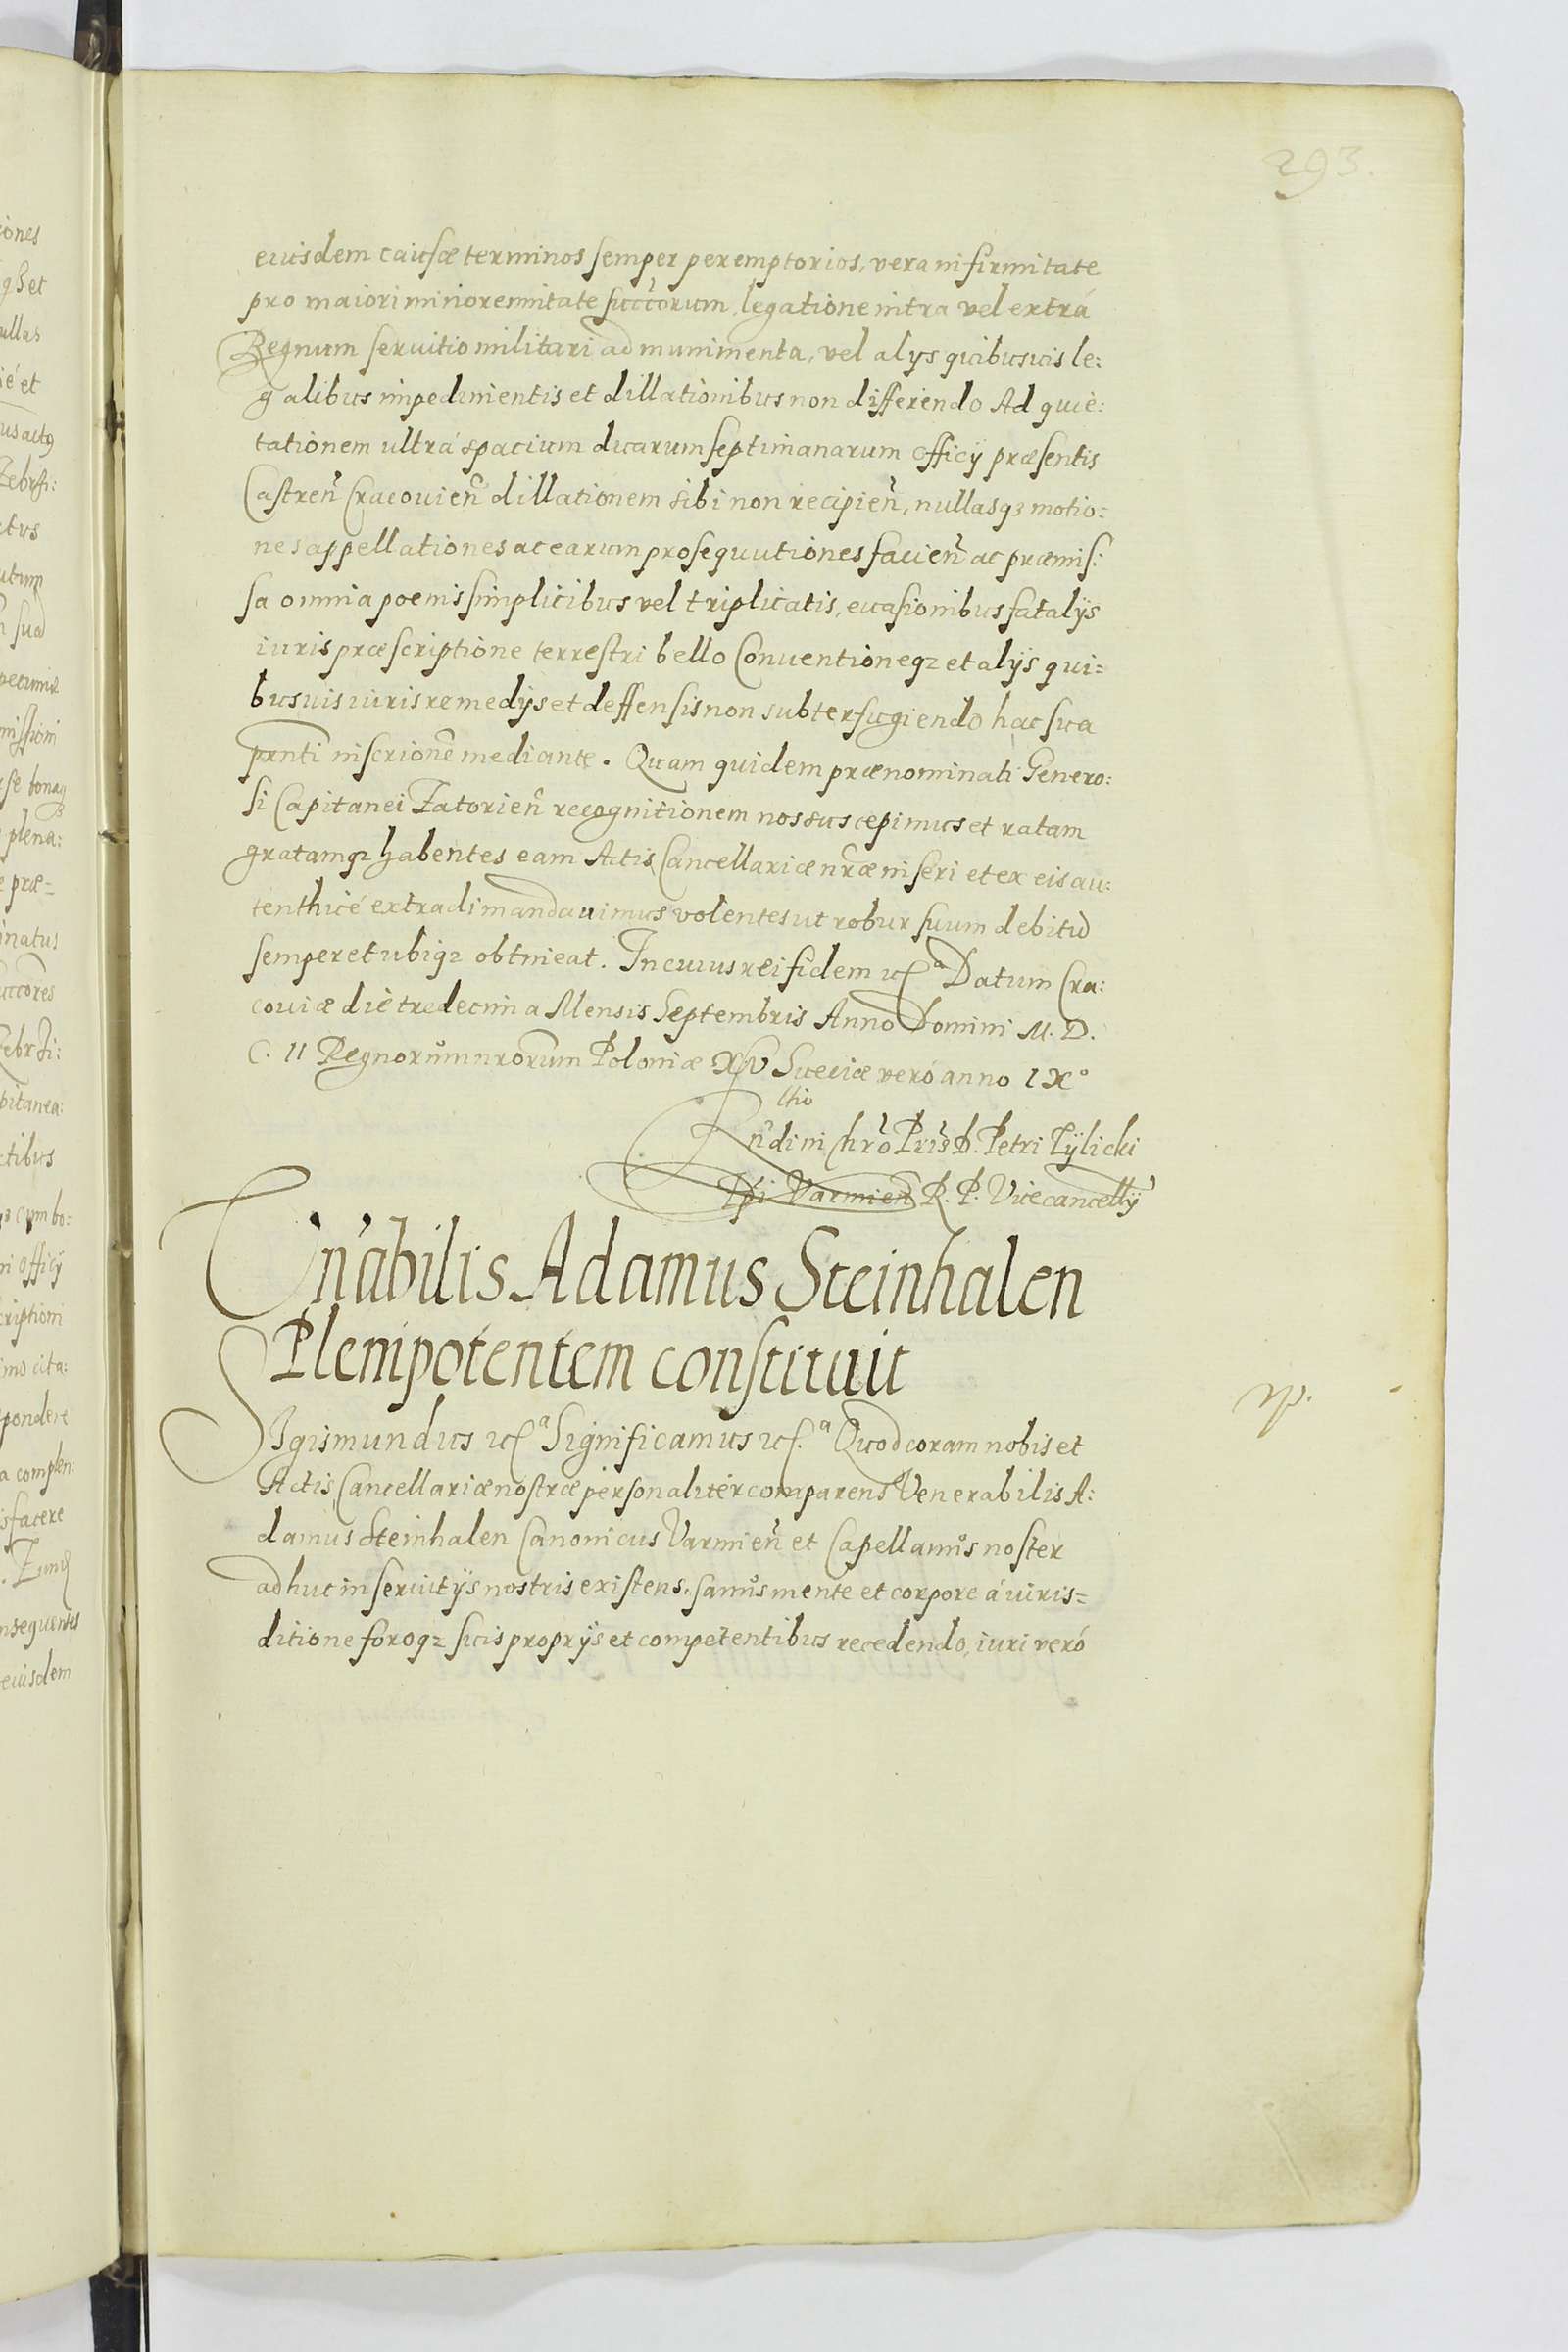 293.
eiusdem causæ terminos semper peremptorios, vera infirmitate
pro maiori minorennitate succrorum, legatione intra vel extrá
Regnum seruitio militari ad munimenta, vel alys quibusuis le:
galibus impedimentis et dillationibus non differendo Ad quie:
tationem ultrá spacium duarum septimanarum officÿ præsentis
Castren̄ Cracouien̄ dillationem sibi non recipien̄, nullasqȝ motio:
nes appellationes ac earum prosequutiones facien̄ ac præmis:
sa omnia poenis simplicibus vel triplicatis, euasionibus fatalÿs
iuris præscriptione terrestri bello Conuentioneqȝ et alÿs qui=
busuis iuris remedÿs et deffensis non subterfugiendo hac sua
prnti inscrione mediante. Quam quidem prænominati Genero:
si Capitanei Zatorien̄ recognitionem nos suscepimus et ratam
gratamqȝ habentes eam Actis Cancellariæ nræ inseri et ex eis au:
tenthicé extradi mandauimus volentes ut robur suum debitū
semper et ubiqȝ obtineat. In cuius rei fidem etc͛ᵃ Datum Cra:
couiæ die tredecima Mensis Septembris Anno Domini M. D.
C. II Regnorum nrorum Poloniæ XV Sueciæ veró anno IX°
Rndi in Chro Pris D. Petri Tÿlicki
Epi Varmien̄ R. P. Vicecancellÿ
Vnabilis Adamus Steinhalen
Plenipotentem constituit
Sigismundus etc͛ᵃ Significamus etc͛.ᵃ Quod coram nobis et
Actis Cancellariæ nostræ personaliter comparens Venerabilis A:
damus Steinhalen Canonicus Varmien̄ et Capellanus noster
adhuc in seruitÿs nostris existens, sanus mente et corpore á iuris=
ditione foroqȝ suis proprÿs et competentibus recedendo, iuri veró